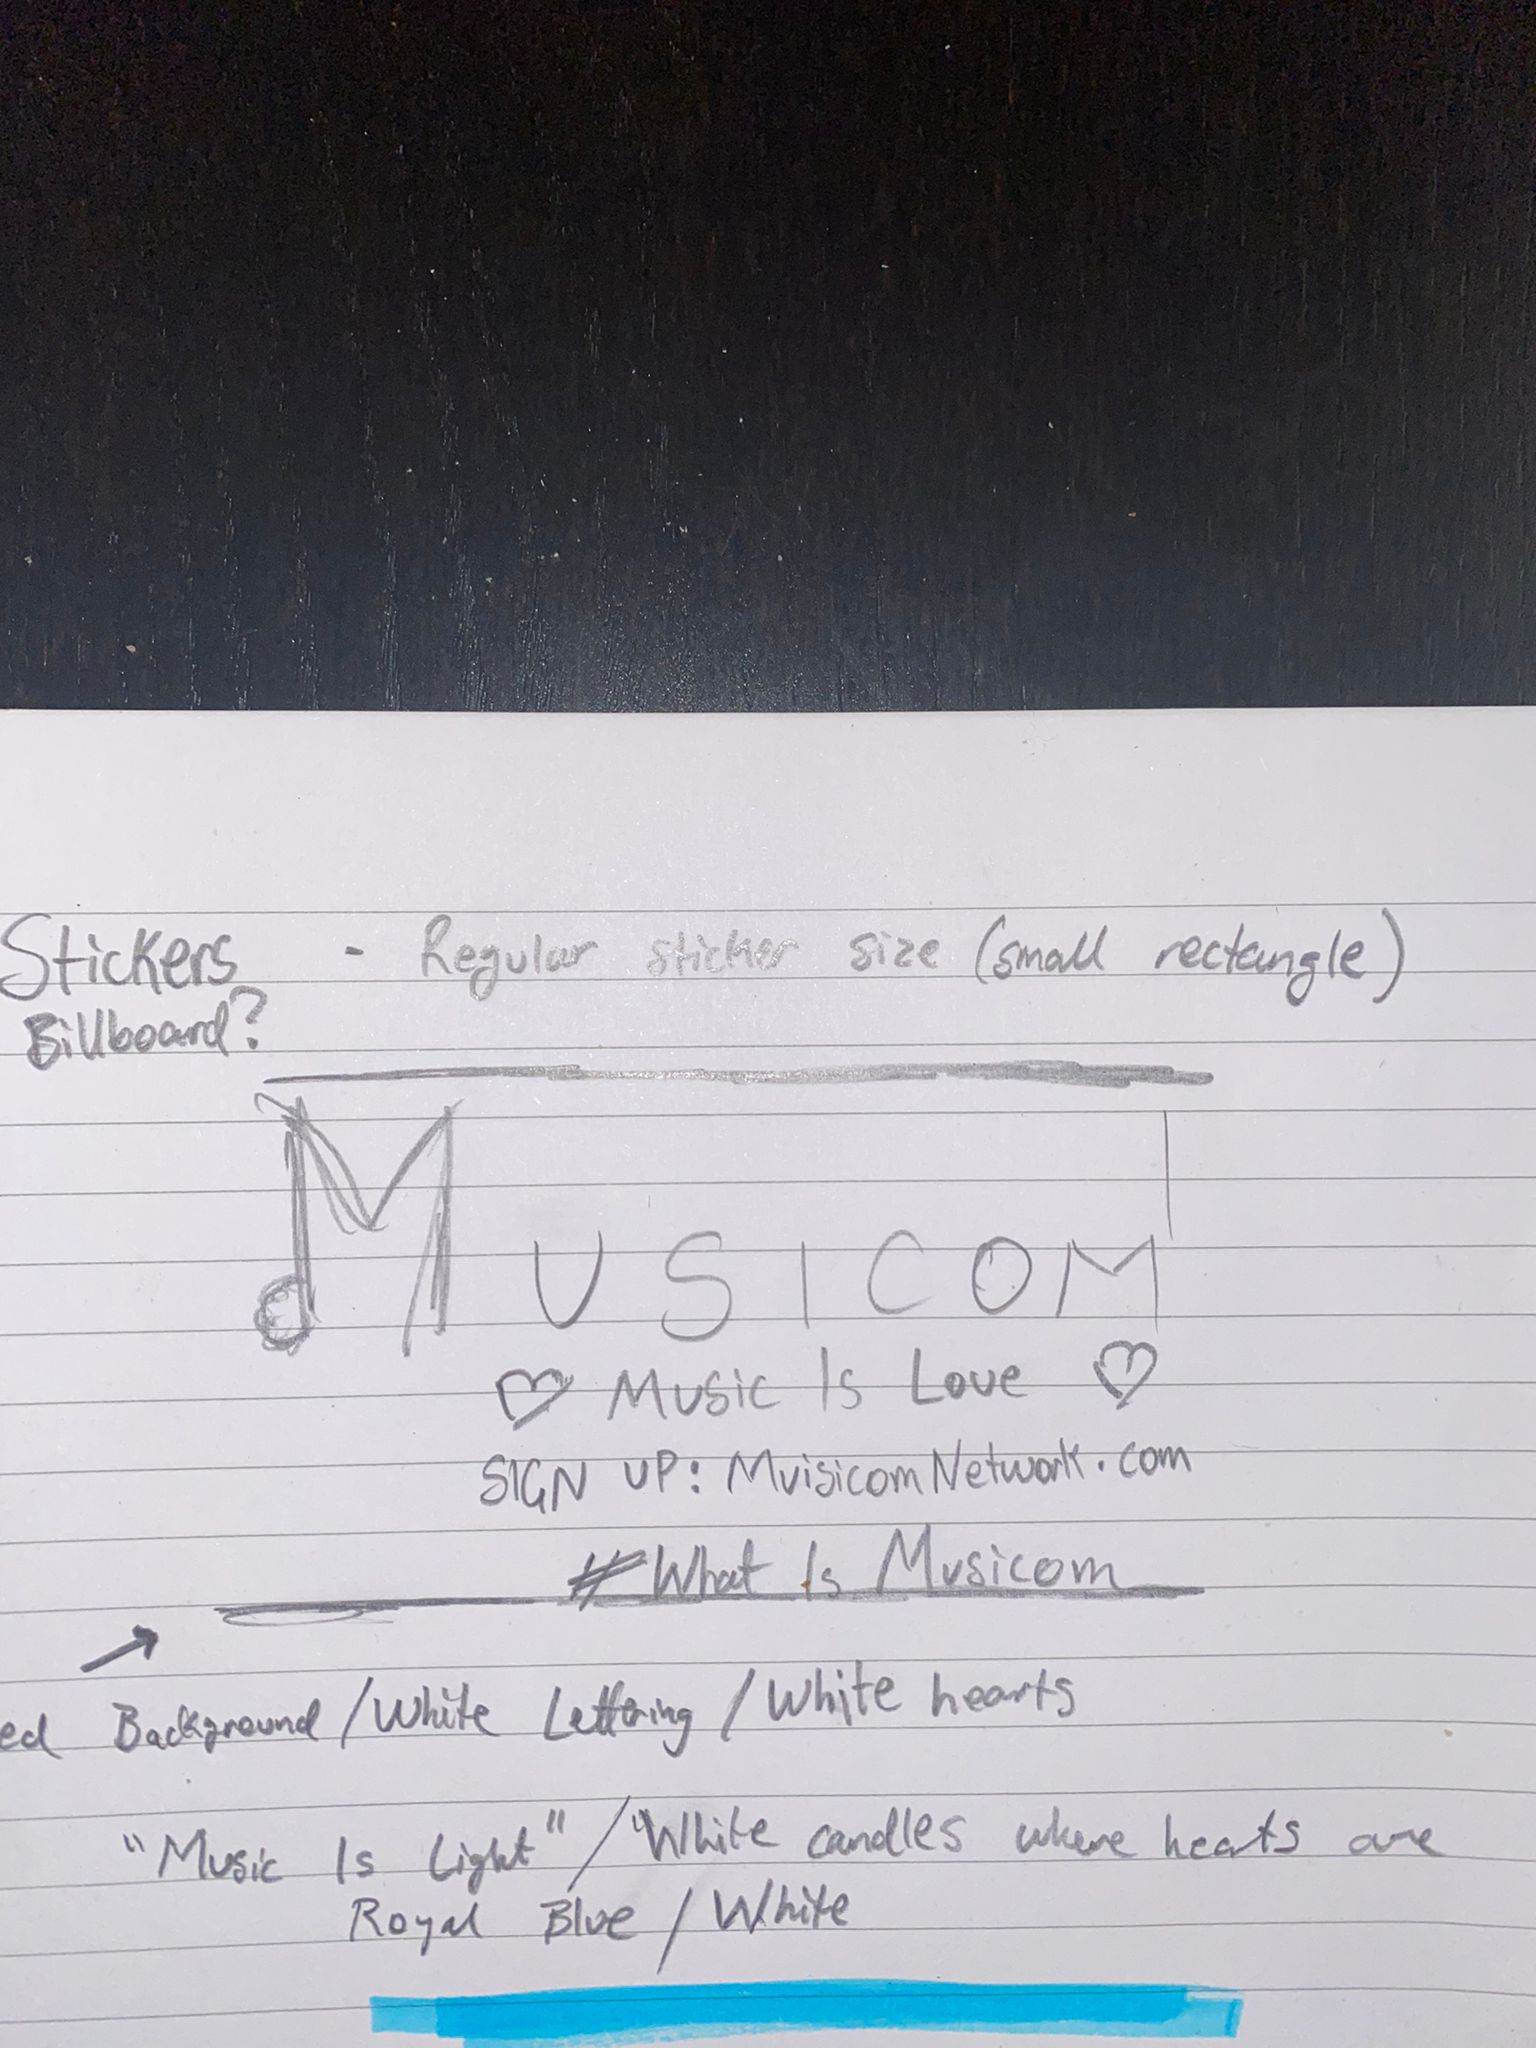 Stickers - Regular sticker size (small rectangle)
Billboard?
MUSICOM
♡ Music Is Love ♡
SIGN UP: MuisicomNetwork.com
#What Is Musicom
ed Background / White Lettering / White hearts
"Music Is Light" / White candles where hearts are
Royal Blue / White